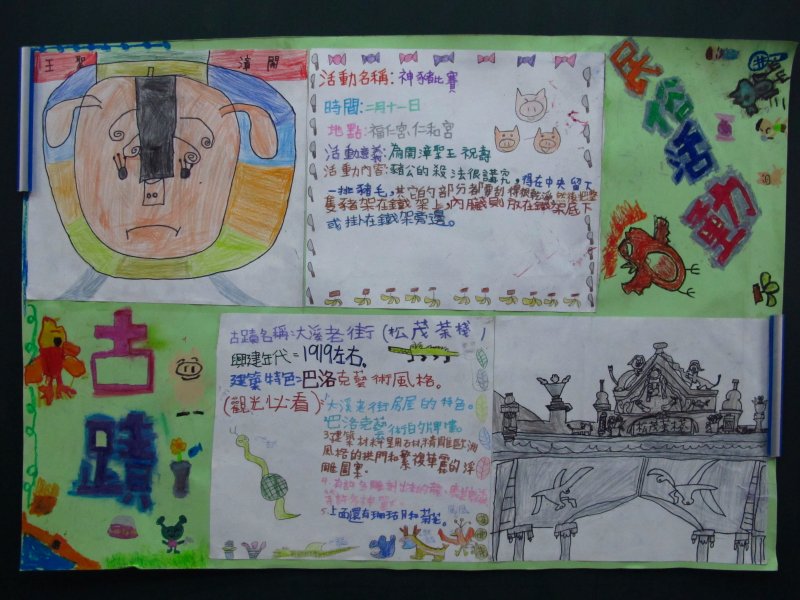 王聖 漳開
活動名稱:神豬比賽
時間:二月十一日
地點:福仁宮、仁和宮
活動意義:為開漳聖王祝壽
活動內容:豬公的殺法很講究,得在中央留下
一排豬毛,其它的部分都要刮得很乾淨,然後把整
隻豬架在鐵架上,內臟則放在鐵架底下
或掛在鐵架旁邊。
民俗活動
古蹟
古蹟名稱:大溪老街(松茂茶棧)
興建年代=1919左右。
建築特色=巴洛克藝術風格。
(觀光必看):
1.大溪老街房屋的特色。
2.巴洛克藝術的牌樓。
風格的拱門和繁複華麗的浮
雕圖案。
5.上面還有珊瑚和菊花。
松茂茶棧